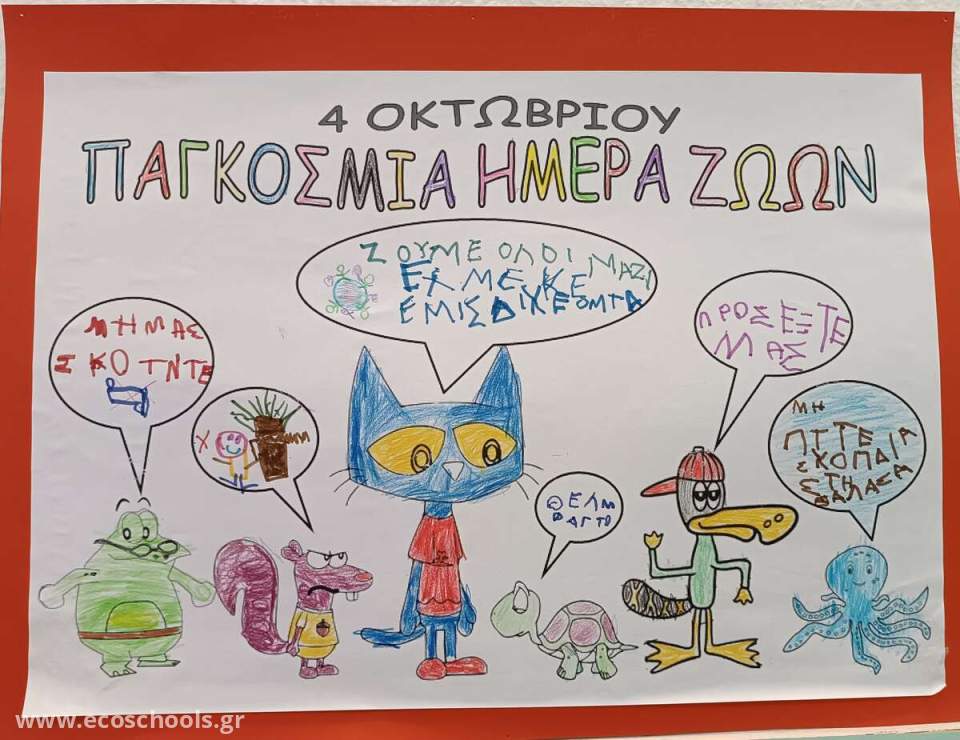 4 ΟΚΤΩΒΡΙΟΥ
ΠΑΓΚΟΣΜΙΑ ΗΜΕΡΑ ΖΩΩΝ
ΖΟΥΜΕ ΟΛΟΙ ΜΑΖΙ
ΕΧΜΕ ΚΕ
ΕΜΙΣ ΔΙΚΕΟΜΤΑ
ΜΗ ΜΑΣ
ΣΚΟΤΝΤΕ
Χ
ΘΕΛΜ
ΦΑΓΤΟ
ΠΡΟΣΕΞΤΕ
ΜΑΣ
ΜΗ
ΠΤΤΕ
ΣΚΟΠΔΙΑ
ΣΤΗ
ΘΑΛΑΣΑ
www.ecoschools.gr